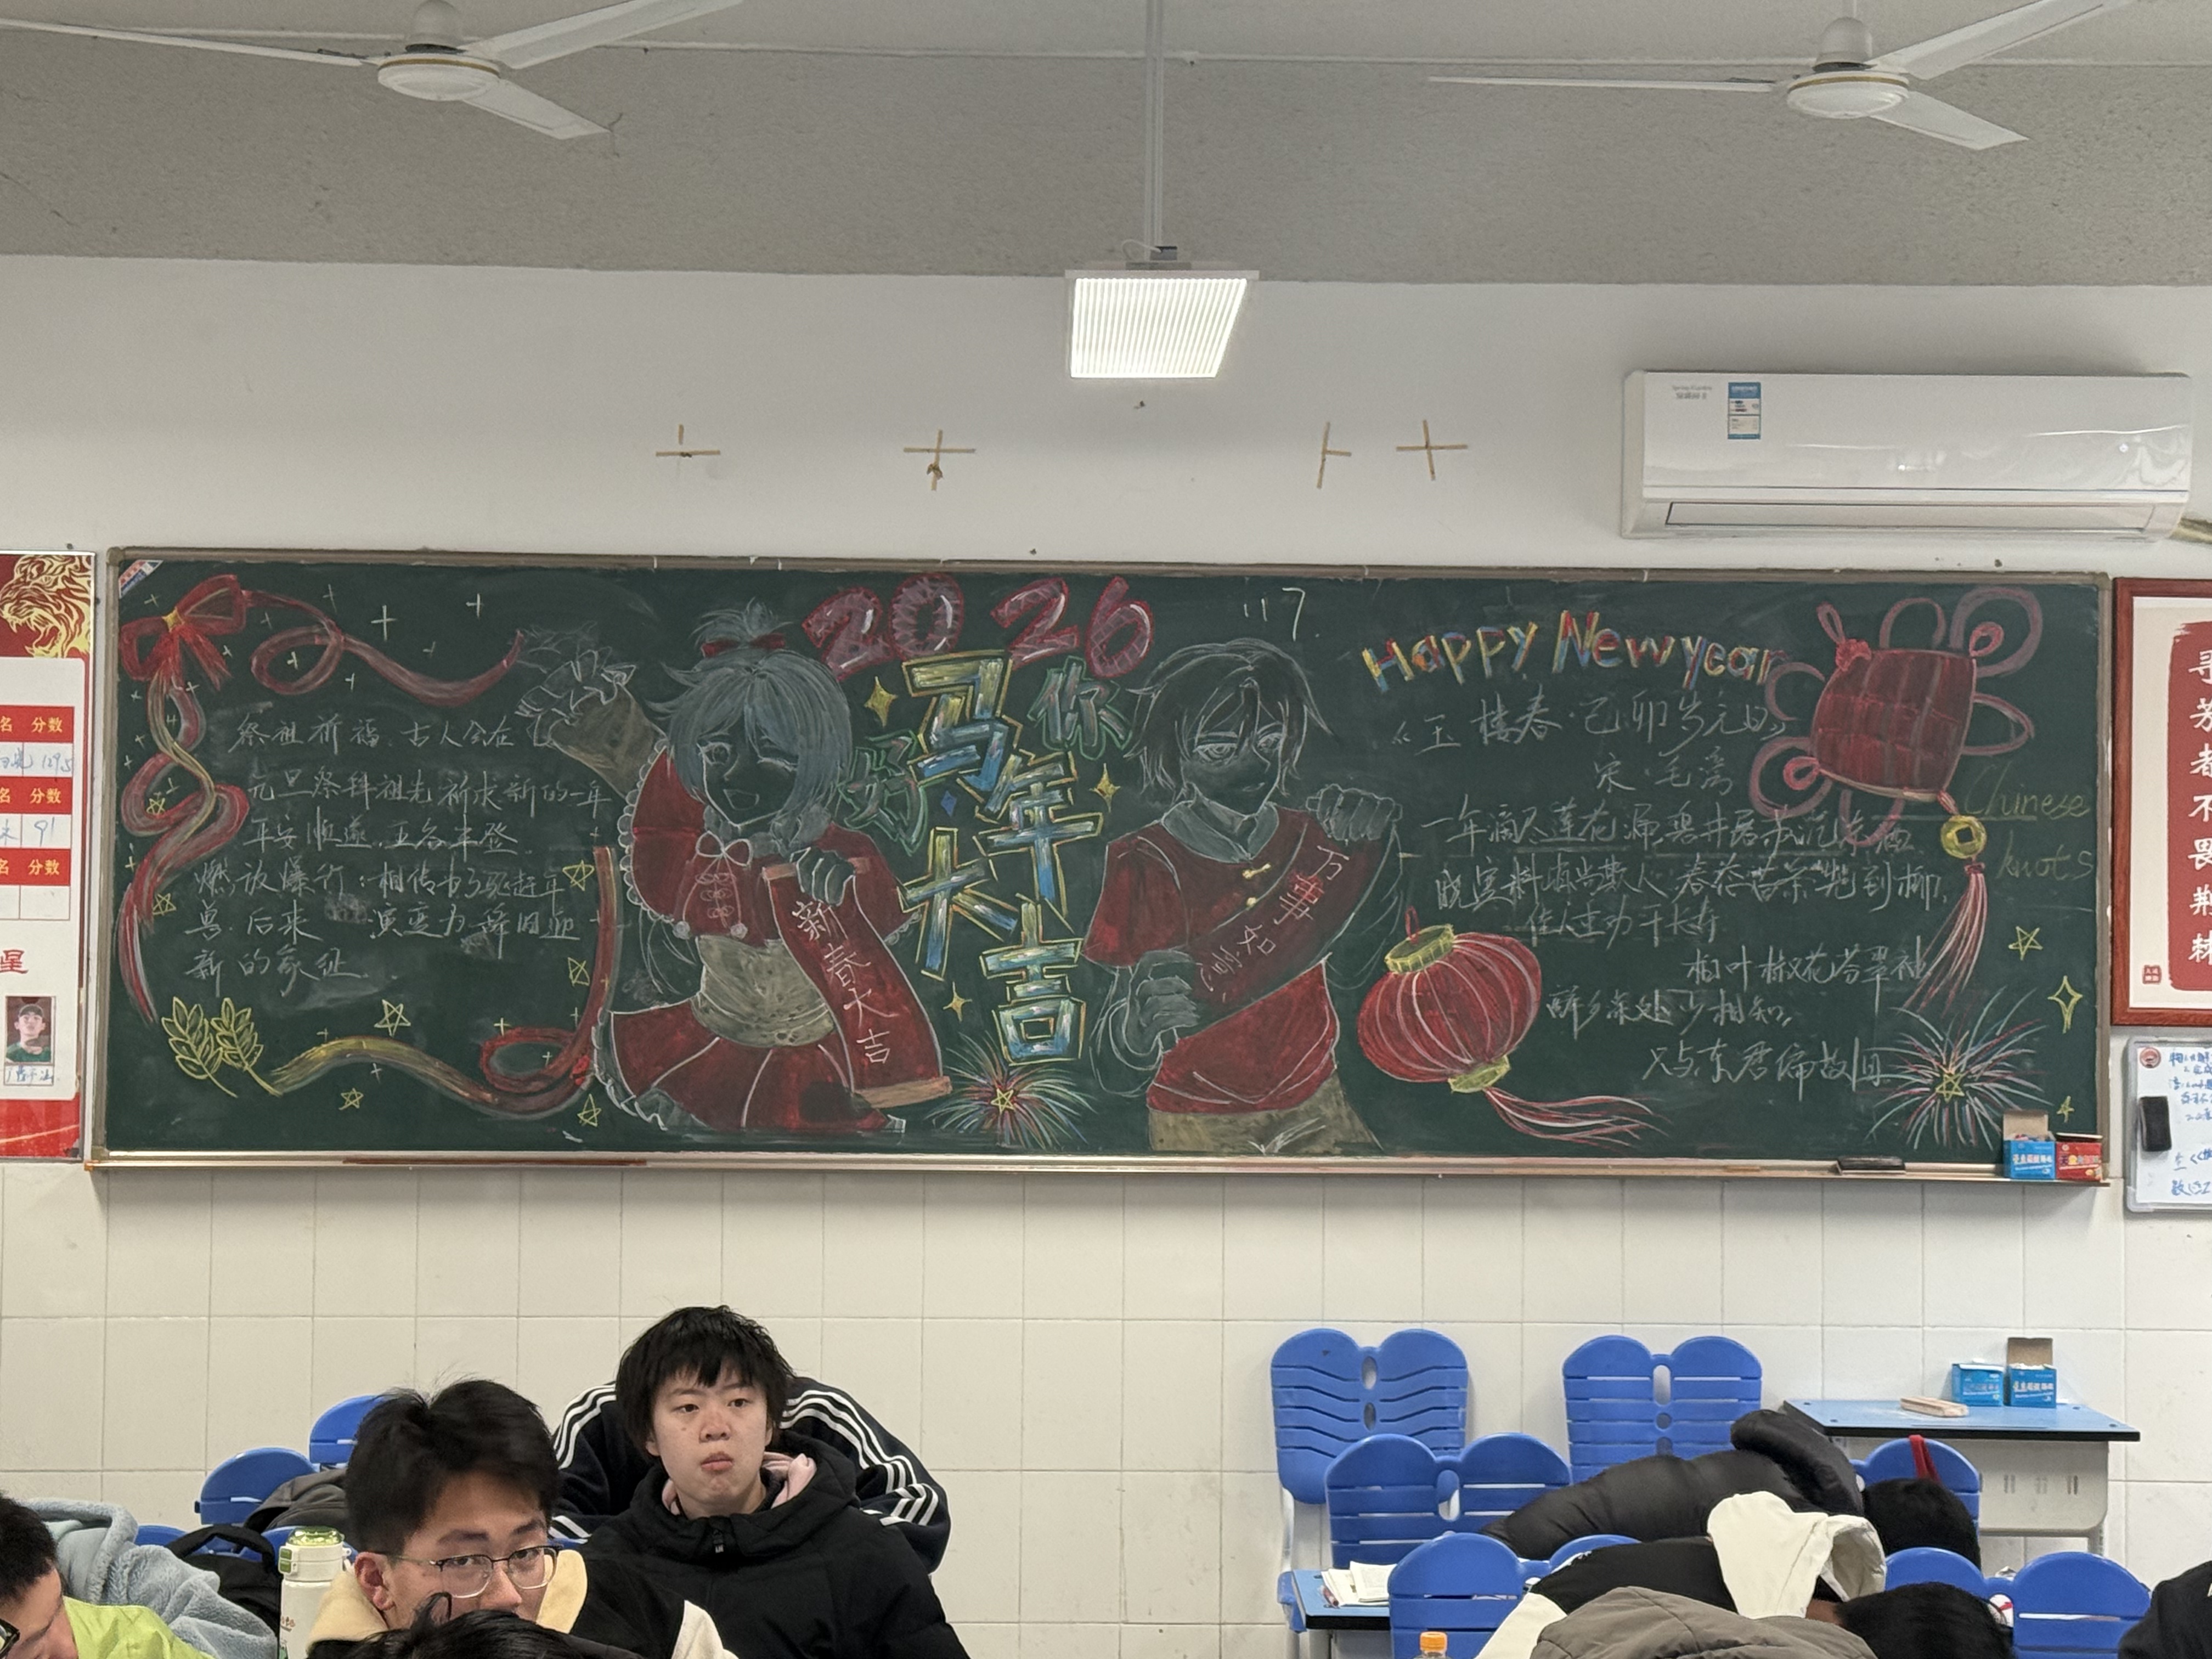 2026
你好
马年大吉
117.
Happy New year
祭祖祈福:古人会在
元旦祭拜祖先祈求新的一年
平安顺遂,五谷丰登
燃放爆竹:相传为了驱赶年
兽.后来 演变为辞旧迎
新的象征
新春大吉
万事如意
《玉楼春·己卯岁元日》
宋·毛滂
一年滴尽莲花漏,碧井屠苏沉冻酒
晓寒料峭尚欺人,春态苗条先到柳,
佳人重劝千长寿
柏叶椒花芬翠袖
醉乡深处少相知,
只与东君偏故旧
Chinese
knots
名 分数
129.5
名 分数
91
名 分数
星
寻
者
不
畏
荆
棘